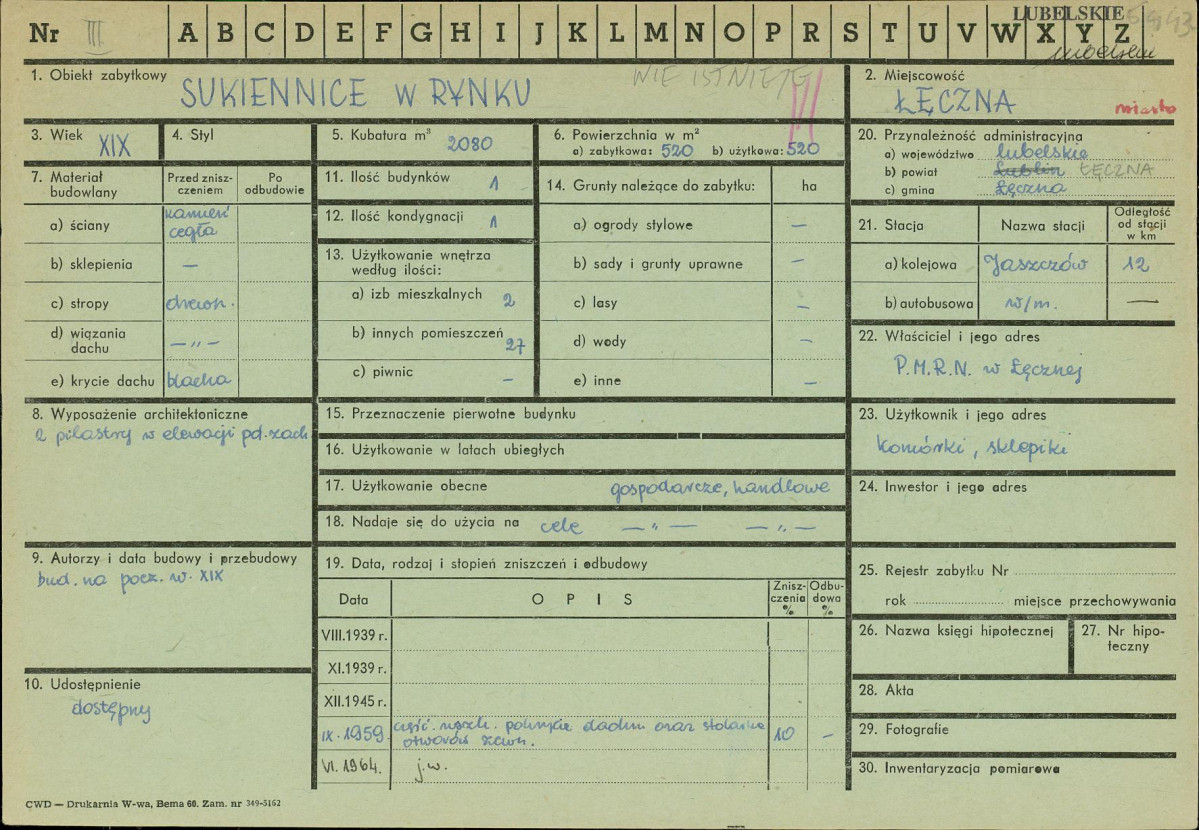 Nr III A B C D E F G H I J K L M N O P R S T U V W X Y Z
LUBELSKIE
lubelskie
1. Obiekt zabytkowy
SUKIENNICE W RYNKU
NIE ISTNIEJE
2. Miejscowość
ŁĘCZNA
miasto
3. Wiek XIX
4. Styl
5. Kubatura m³ 2080
6. Powierzchnia w m²
a) zabytkowa: 520 b) użytkowa: 520
20. Przynależność administracyjna
a) województwo lubelskie
b) powiat Lublin ŁĘCZNA
c) gmina Łęczna
7. Materiał budowlany
Przed zniszczeniem
Po odbudowie
a) ściany kamień
cegła
b) sklepienia —
c) stropy drewn.
d) wiązania dachu — „ —
e) krycie dachu blacha
11. Ilość budynków 1
12. Ilość kondygnacji 1
13. Użytkowanie wnętrza
według ilości:
a) izb mieszkalnych 2
b) innych pomieszczeń 27
c) piwnic —
14. Grunty należące do zabytku: ha
a) ogrody stylowe —
b) sady i grunty uprawne —
c) lasy —
d) wody —
e) inne —
21. Stacja Nazwa stacji Odległość od stacji w km
a) kolejowa Jaszczów 12
b) autobusowa w/m. —
22. Właściciel i jego adres
P.M.R.N. w Łęcznej
8. Wyposażenie architektoniczne
2 pilastry w elewacji pd.zach.
15. Przeznaczenie pierwotne budynku
16. Użytkowanie w latach ubiegłych
17. Użytkowanie obecne gospodarcze, handlowe
18. Nadaje się do użycia na cele — „ — — „ —
23. Użytkownik i jego adres
komórki, sklepiki
24. Inwestor i jego adres
9. Autorzy i data budowy i przebudowy
bud. na pocz. w. XIX
19. Data, rodzaj i stopień zniszczeń i odbudowy
Data OPIS Zniszczenia % Odbudowa %
VIII.1939 r.
XI.1939 r.
XII.1945 r.
IX.1959 część. uszk. pokrycie dachu oraz stolarka
otworów zewn. 10 —
VI.1964. j.w.
25. Rejestr zabytku Nr
rok miejsce przechowywania
26. Nazwa księgi hipotecznej
27. Nr hipoteczny
10. Udostępnienie
dostępny
28. Akta
29. Fotografie
30. Inwentaryzacja pomiarowa
CWD — Drukarnia W-wa, Bema 60. Zam. nr 349-5162